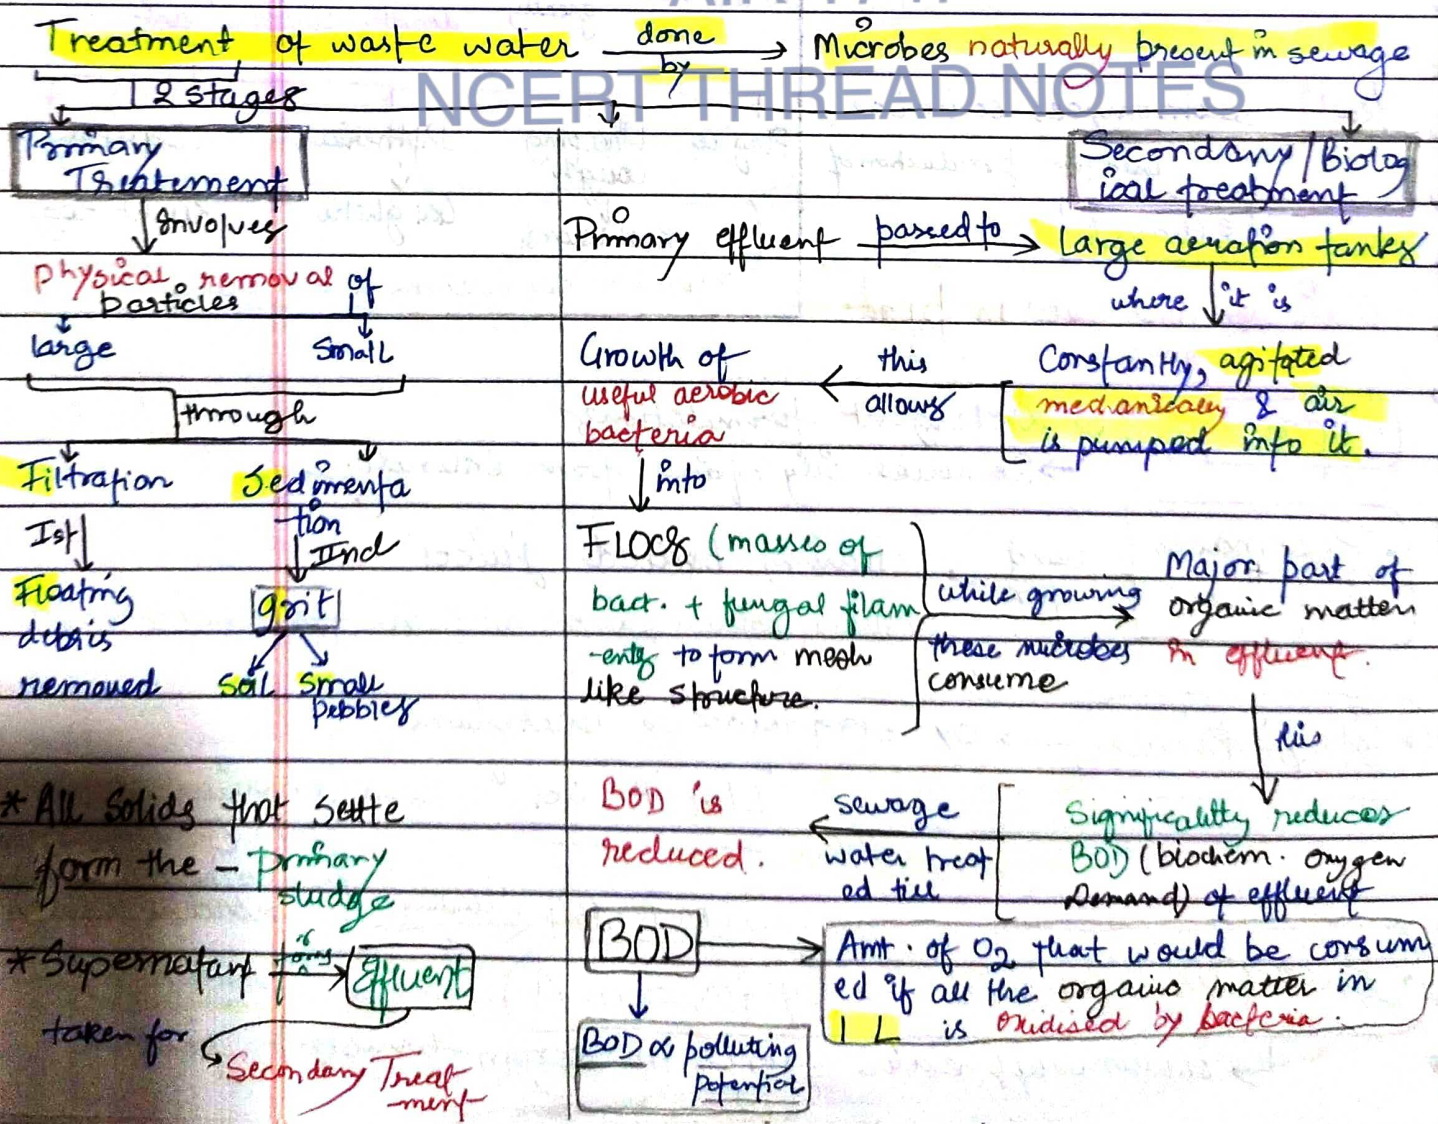 AIR 17.11
Treatment of waste water done by Microbes naturally present in sewage
NCERT THREAD NOTES
2 stages
Primary
Treatement
involves
physical removal of
particles
large small
through
Filtration Sedimenta
-tion
Ist IInd
Floating
debris
removed
grit
soil small
pebbles
* All Solids that settle
form the - primary
sludge
* Supernatant forms Effluent
taken for
Secondary Treat
-ment
Secondary/Biolog
ical treatment
Primary effluent passed to large aeration tanks
where it is
Constantly, agitated
mechanically & air
is pumped into it.
this
allows
Growth of
useful aerobic
bacteria
into
FLOCS (masses of
bact. + fungal filam
-ents to form mesh
like structure.
while growing
these microbes
consume
Major part of
organic matter
in effluent.
this
Significaltly reduces
BOD (biochem. oxygen
Demand) of effluent
sewage
water treat
ed till
BOD is
reduced.
BOD
Amt. of O2 that would be consum
ed if all the organic matter in
1 L is oxidised by bacteria.
BOD ∝ polluting
potential